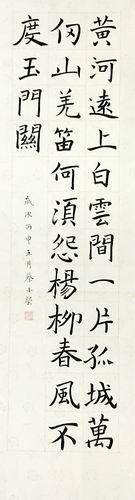 黃河遠上白雲間一片孤城萬
仞山羌笛何須怨楊柳春風不
度玉門關
歲次丙申五月蔡小榮